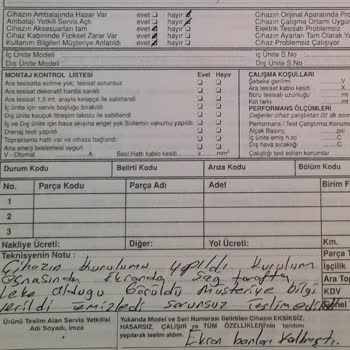 Cihazın Ambalajında Hasar Var evet hayır
Ambalajı Yetkili Servis Açtı evet hayır
Cihazın Aksesuarları tam evet hayır
Cihaz Kabininde Fiziksel Zarar Var evet hayır
Kullanım Bilgileri Müşteriye Anlatıldı evet hayır
Cihazın Orijinal Aparatında
Cihazın Çalışma Ortamı Uygun
Elektrik Tesisatı Problemsiz
Cihazın Ayarları Tam Olarak Ya
Cihaz Problemsiz Çalışıyor
İç Ünite Model İç Ünite S.No
Dış Ünite Model Dış Ünite S.No
MONTAJ KONTROL LİSTESİ Evet Hayır
Ara tesisatta ezilme yok, tesisat sorunsuz
Ara tesisat dekoratif bantla sarıldı
Ara tesisat 1,5 mt. aralıkla kelepçe ile sabitlendi
İç ünite için servis boşluğu bırakıldı
Dış ünite kauçuk titreşim takozu ile sabitlendi
İç ve Dış Ünite için hava akışına engel yok Sistemin vakumu yapıldı
Drenaj testi yapıldı
Topraklama hattı var ve cihaza bağlandı
Ana enerji beslemesi uygun
V - Otomat A Besl Hattı kablo kesiti x mm²
ÇALIŞMA KOŞULLARI
Şebeke gerilimi V
Ara tesisat kablo kesiti X
Boru tesisatı uzunluğu mt
Kot farkı mt
PERFORMANS ÖLÇÜMLERİ
Değerler cihaz çalıştıktan 20 dk sonra
Performans / Test Çalıştırma Konumu
Alçak Basınç psi
İç ünite emiş h.sıc.
Dış hava sıcaklığı C
Çalıştığı test edilen konumlar
Durum Kodu Belirti Kodu Arıza Kodu Bölüm Kodu
No. Parça Kodu Parça Adı Adet Birim F
1
2
3
Nakliye Ücreti: Diğer: Yol Ücreti: Km.
Teknisyenin Notu : Parça T
Cihazın kurulumu yapıldı kurulum İşçilik
Esnasında Ekranda Sağ tarafta Ara Top
Leke Olduğu Görüldü Müşteriye bilgi KDV
Verildi Temizledi sorunsuz Teslim edildi
Ürünü Teslim Alan Servis Yetkilisi
Adı Soyadı, İmza
Yukarıda Model ve Seri Numarası Belirtilen Cihazın EKSİKSİZ,
HASARSIZ, ÇALIŞIR ve TÜM ÖZELLİKLERİ'nin tanıtımı
yapılarak teslim aldım.
Ekran bantları kalkmıştı.